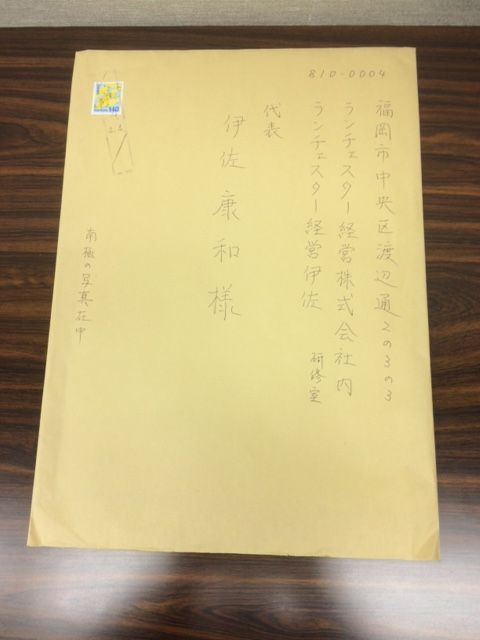 810-0004
福岡市中央区渡辺通2の3の3
ランチェスター経営株式会社内
ランチェスター経営伊佐 研修室
代表
伊佐康和様
南極の写真在中
140